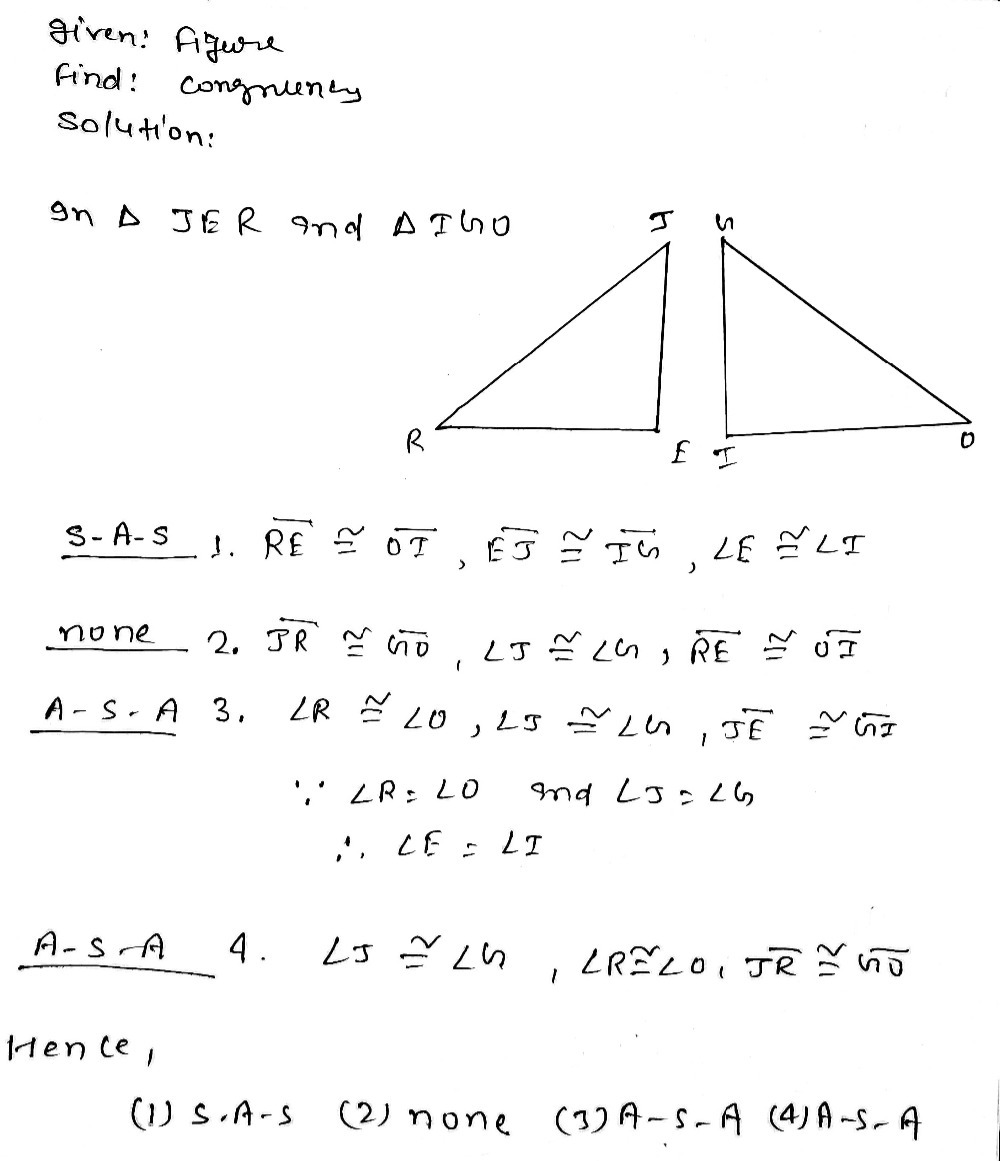 Given: figure
Find: congruency
Solution:
In Δ JER and Δ IGO
J G
R
E I
O
S-A-S 1. RE ≅ OI, EJ ≅ IG, ∠E ≅ ∠I
none 2. JR ≅ GO, ∠J ≅ ∠G, RE ≅ OI
A-S-A 3. ∠R ≅ ∠O, ∠J ≅ ∠G, JE ≅ GI
∵ ∠R = ∠O and ∠J = ∠G
∴ ∠E = ∠I
A-S-A 4. ∠J ≅ ∠G, ∠R ≅ ∠O, JR ≅ GO
Hence,
(1) S-A-S (2) none (3) A-S-A (4) A-S-A